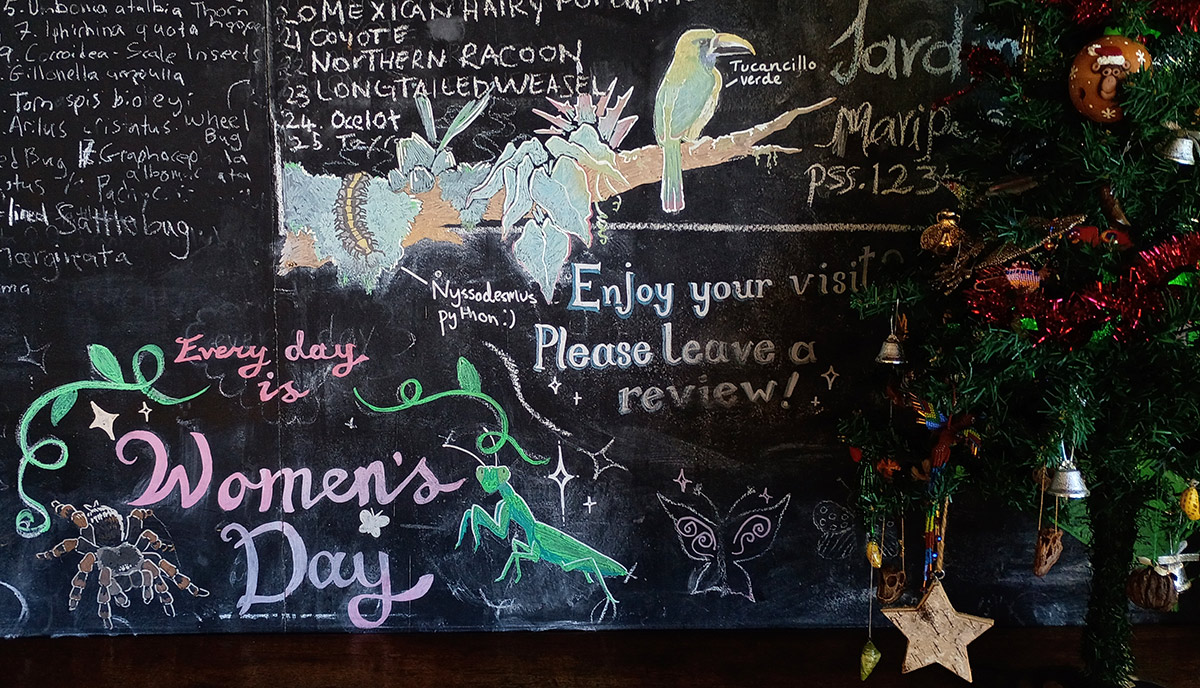 5. Umbonia ataibia Thorn
7. Iphichina quota
9. Coccoidea-Scale Insects
Tomospis bioleyi
Arilus cristatus. Wheel
Bug
Bug Graphocep
albom
Pacific
lined Sattlebug.
marginata
20 MEXICAN HAIRY
21 COYOTE
22 NORTHERN RACOON
23 LONGTAILED WEASEL
24. Ocelot
25.
Tucancillo
verde
Jard
Marip
pss. 123
Nyssodesmus
python :)
Enjoy your visit
Please leave a
review!
Every day
is
Women's
Day